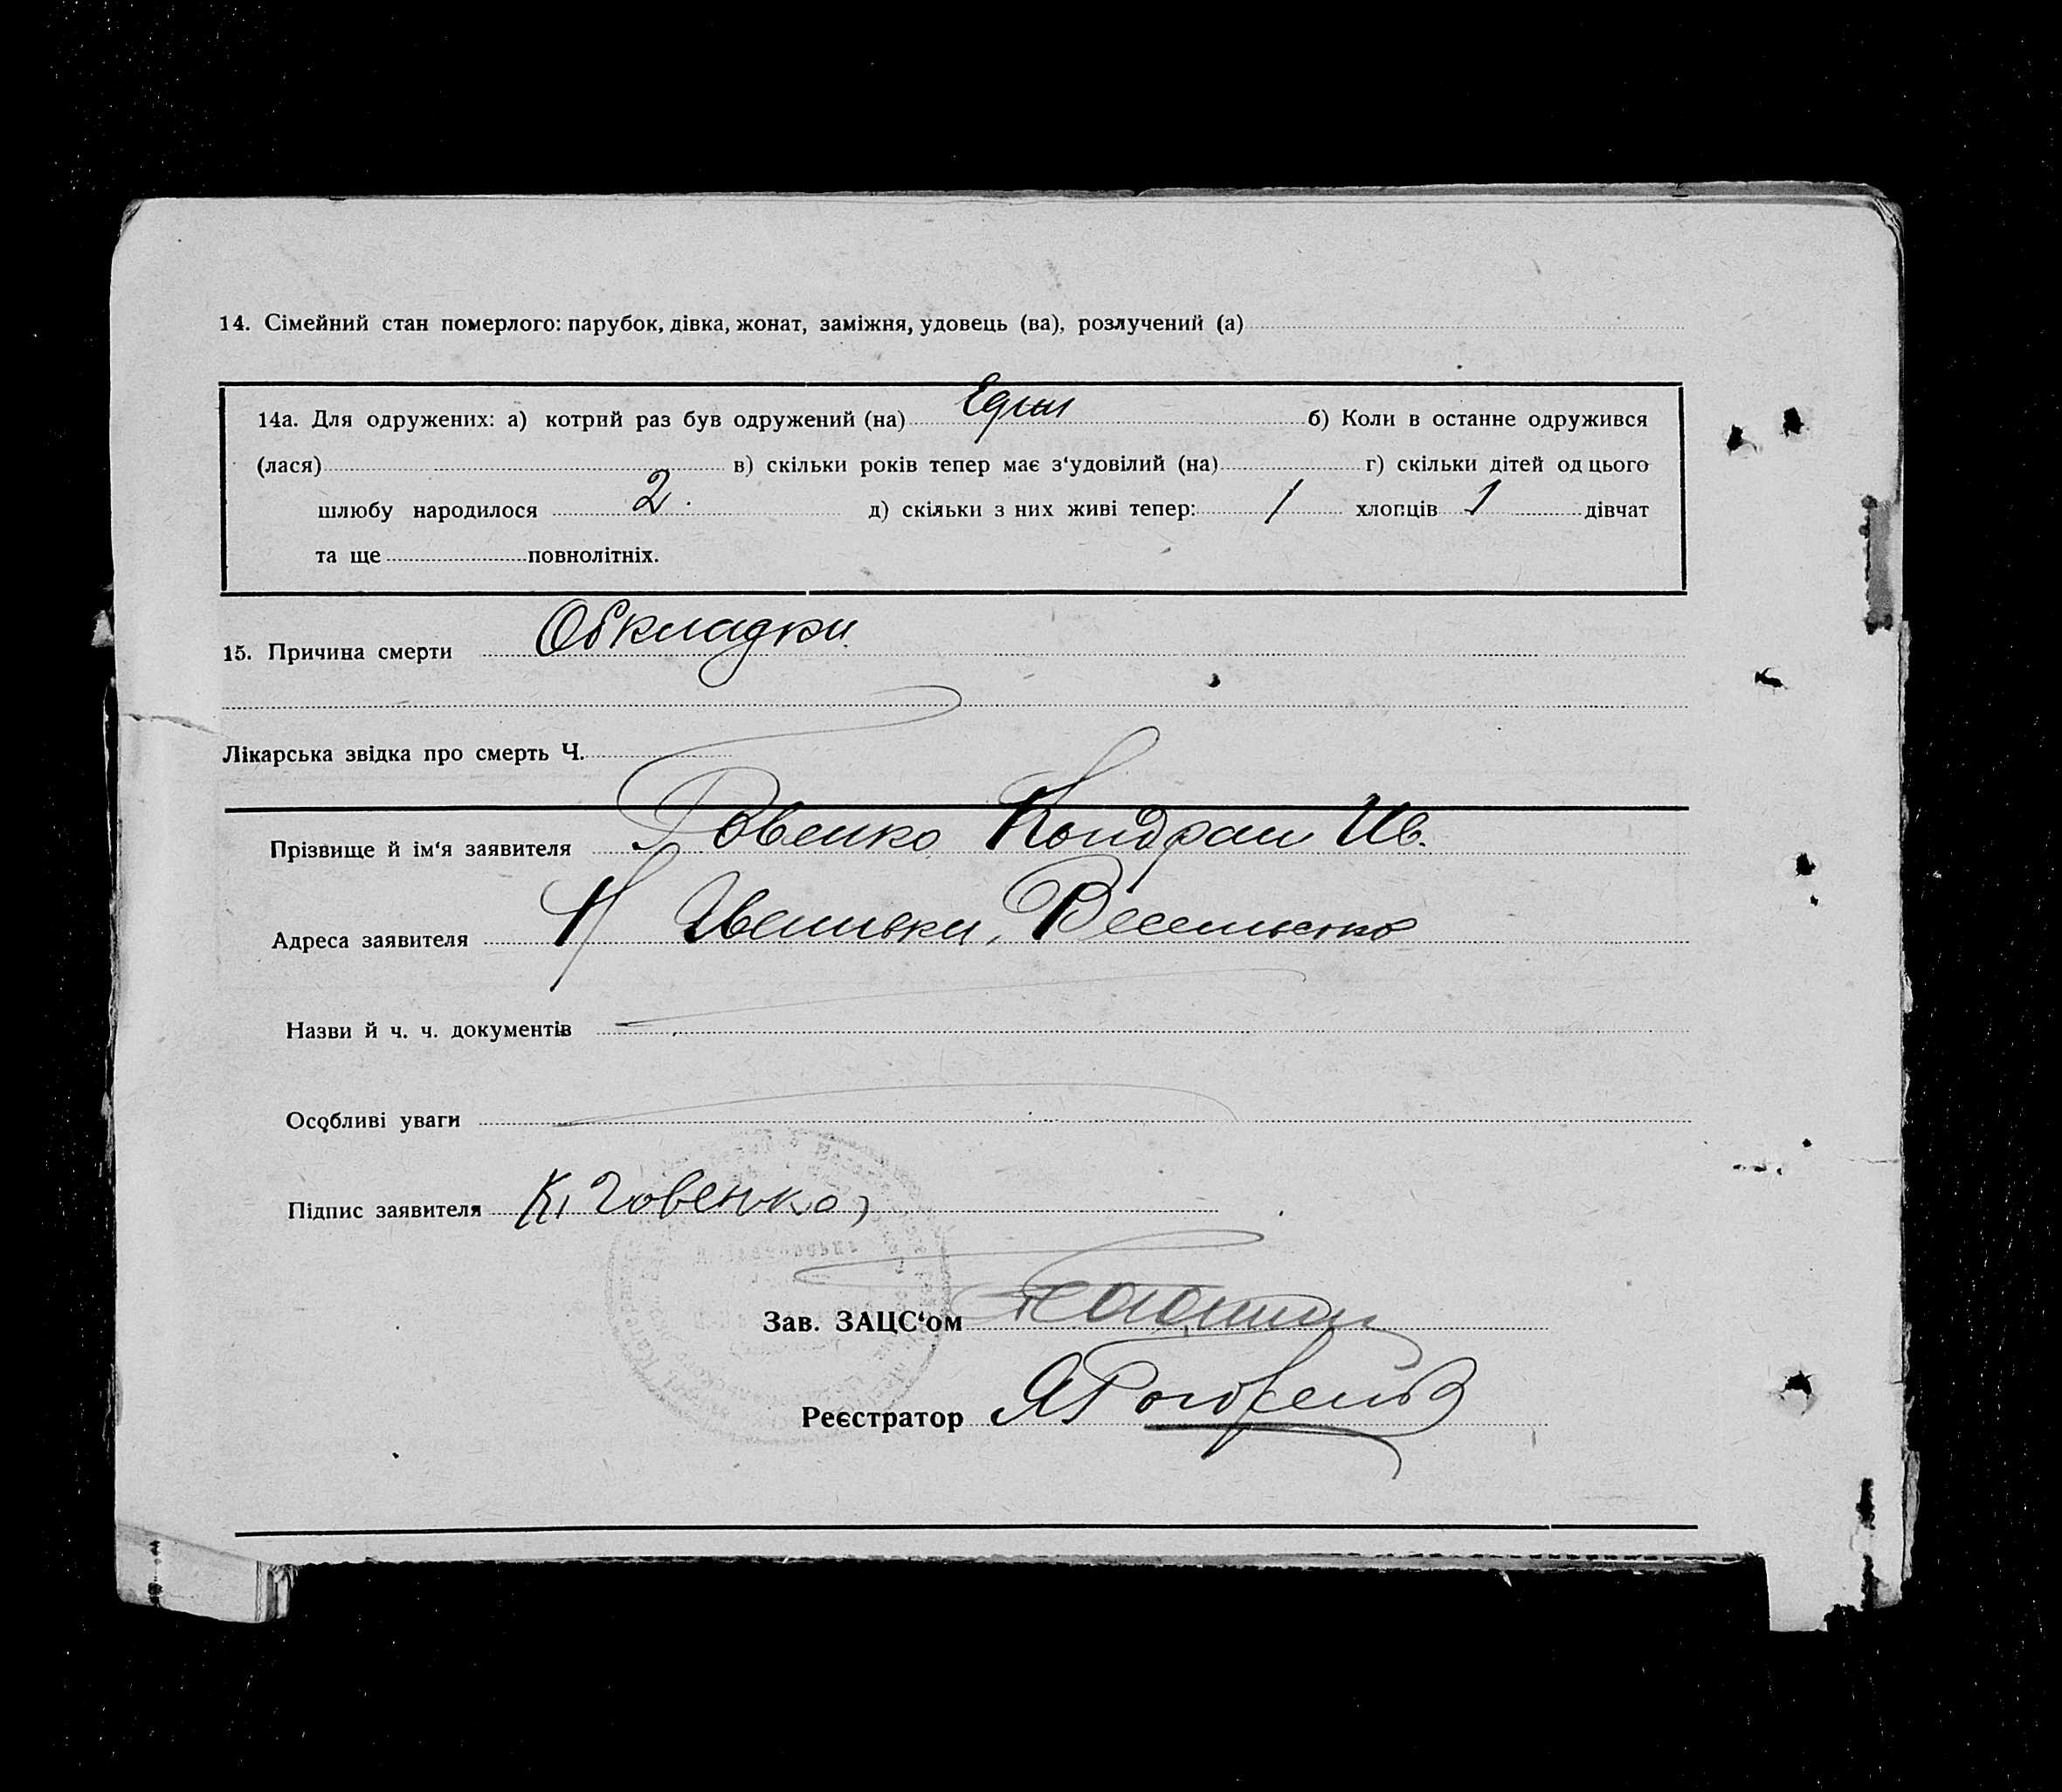 14. Сімейний стан померлого: парубок, дівка, жонат, заміжня, удовець (ва), розлучений (а)
14а. Для одружених: а) котрий раз був одружений (на) Един б) Коли в останне одружився
(лася) в) скільки років тепер має з‘удовілий (на) г) скільки дітей од цього
шлюбу народилося 2. д) скільки з них живі тепер: 1 хлопців 1 дівчат
та ще повнолітніх.
15. Причина смерти Обкладки
Лікарська звідка про смерть Ч.
Прізвище й ім‘я заявителя Говенко Кондрат Ив.
Адреса заявителя
Назви й ч. ч. документів
Особливі уваги
Підпис заявителя К, Говенко,
Зав. ЗАЦС‘ом
Реєстратор